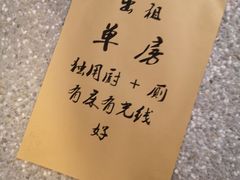 出租
单房
独用厨+厕
有床有光线
好